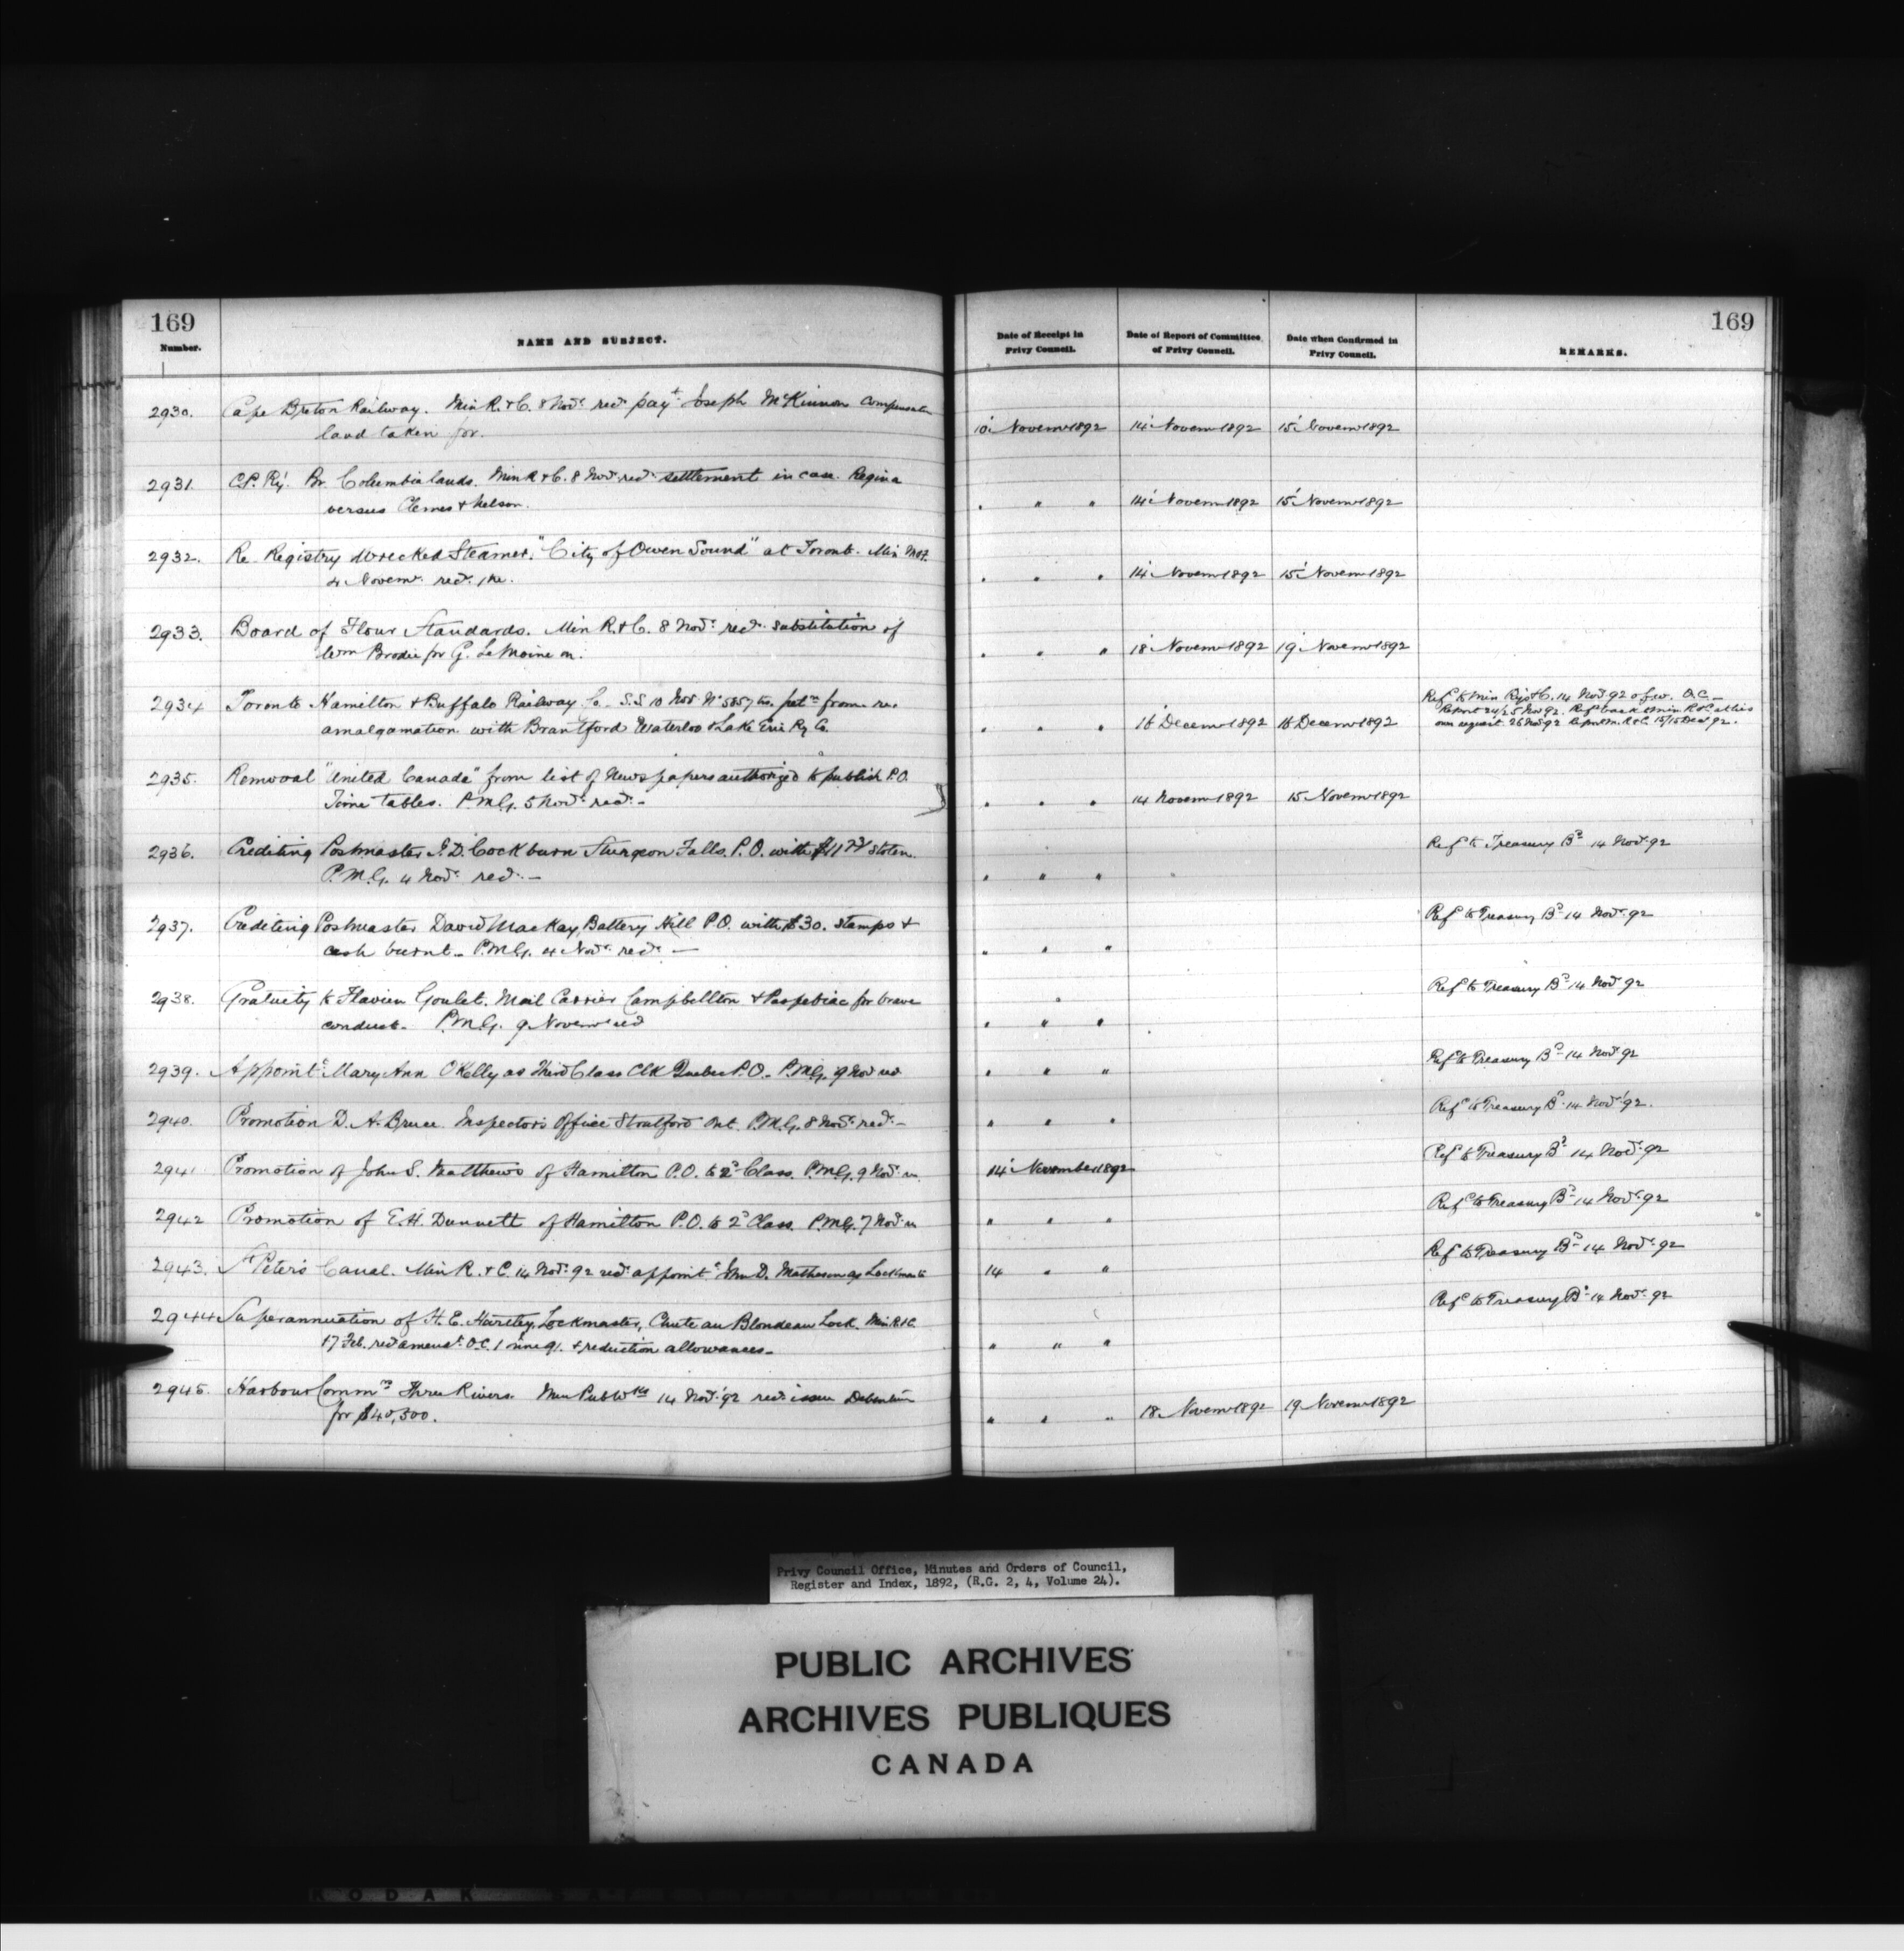 169
169
Number.
NAME AND SUBJECT.
Date of Receipt in Privy Council.
Date of Report of Committee of Privy Council.
Date when Confirmed in Privy Council.
REMARKS.
2930. Cape Breton Railway. Min R. & C. 8 Nov.r rec.s pay.t Joseph McKinnon
land taken for. 10 Novemr 1892 14 Novemr 1892 15 Novemr 1892
2931. C.P. Ry. Br. Columbia lands. Min R & C. 8 Nov.r rec.s settlement in case Regina
versus Clemes & Nelson. " " " 14 Novemr 1892 15 Novemr 1892
2932. Re Registry wrecked Steamer "City of Owen Sound" at Toronto. Min M&F.
4 Novemr. " " " 14 Novemr 1892 15 Novemr 1892
2933. Board of Flour Standards. Min R. & C. 8 Nov.r rec.s substitution of
Wm Brodie for G. LeMoine on. " " " 18 Novemr 1892 19 Novemr 1892
2934 Toronto Hamilton & Buffalo Railway Co. S.S. 10 Nov No 5857 from
amalgamation with Brantford Waterloo & Lake Erie Ry Co. " " " 16 Decemr 1892 16 Decemr 1892
2935. Removal "United Canada" from list of Newspapers authorized to publish P.O.
Time Tables. P.M.G. 5 Nov.r rec.s – " " " 14 Novemr 1892 15 Novemr 1892
2936. Crediting Postmaster J.D. Cockburn Sturgeon Falls P.O. with stolen. Ref.d to Treasury B.d 14 Nov.r 92
P.M.G. 4 Nov.r rec.s – " " "
2937. Crediting Postmaster David MacKay, Battery Hill P.O. with $30. stamps & Ref.d to Treasury B.d 14 Nov.r 92
cash burnt – P.M.G. 4 Nov.r rec.s – " " "
2938. Gratuity to Flavien Goulet. Mail Carrier Campbellton & Paspebiac for brave Ref.d to Treasury B.d 14 Nov.r 92
conduct – P.M.G. 9 Novemr " " "
2939. Appoint.t Mary Ann O'Kelly as Third Class Clk Quebec P.O. – P.M.G. 9 Nov " " " Ref.d to Treasury B.d 14 Nov.r 92
2940. Promotion D. A. Bruce Inspector's Office Stratford Ont. P.M.G. 8 Nov.r rec.s – " " " Ref.d to Treasury B.d 14 Nov.r 92.
2941 Promotion of John S. Matthews of Hamilton P.O. to 2.d Class. P.M.G. 9 Nov.r 14 November 1892 Ref.d to Treasury B.d 14 Nov.r 92
2942 Promotion of E.H. Dunnett of Hamilton P.O. to 2.d Class. P.M.G. 7 Nov.r " " " Ref.d to Treasury B.d 14 Nov.r 92
2943. St Peter's Canal. Min R. & C. 14 Nov.r 92 rec.s appoint.t D. Matheson as 14 " " Ref.d to Treasury B.d 14 Nov.r 92
2944 Superannuation of H. E. Hartley, Lockmaster, Chute au Blondeau Lock. Min R & C. Ref.d to Treasury B.d 14 Nov.r 92
17 Feb. O.C. & reduction allowances – " " "
2945. Harbour Comm.rs Three Rivers. Min Pub Wks 14 Nov.r 92 rec.s issue Debenture
for $40,300. " " " 18 Novemr 1892 19 Novemr 1892
Privy Council Office, Minutes and Orders of Council,
Register and Index, 1892, (R.G. 2, 4, Volume 24).
PUBLIC ARCHIVES
ARCHIVES PUBLIQUES
CANADA
KODAK